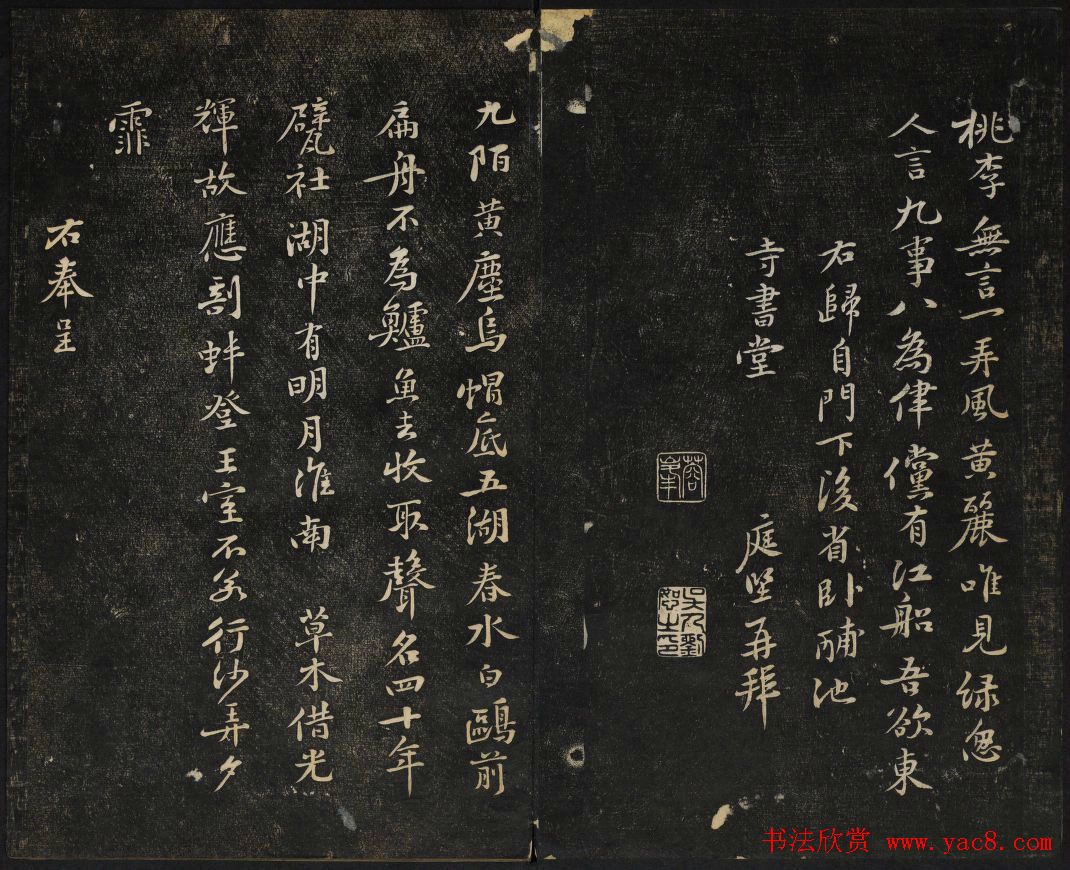 桃李無言一弄風黄麗唯見緑怱
人言九事八為律儻有江船吾欲東
右歸自門下後省卧酺池
寺書堂
庭堅再拜
九陌黄塵烏帽底五湖春水白鷗前
扁舟不為鱸魚去收取聲名四十年
甓社湖中有明月淮南草木借光
輝故應剖蚌登王室不若行沙弄夕
霏
右奉呈
书法欣赏 www.yac8.com